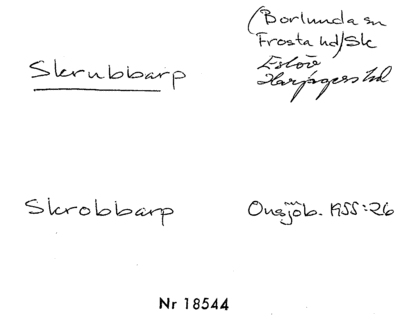 (Borlunda sn
Frosta hd/Sk
Skrubbarp
Eslöv
Harjagers hd
Skrobbarp
Onsjöb. 1955:26
Nr 18544